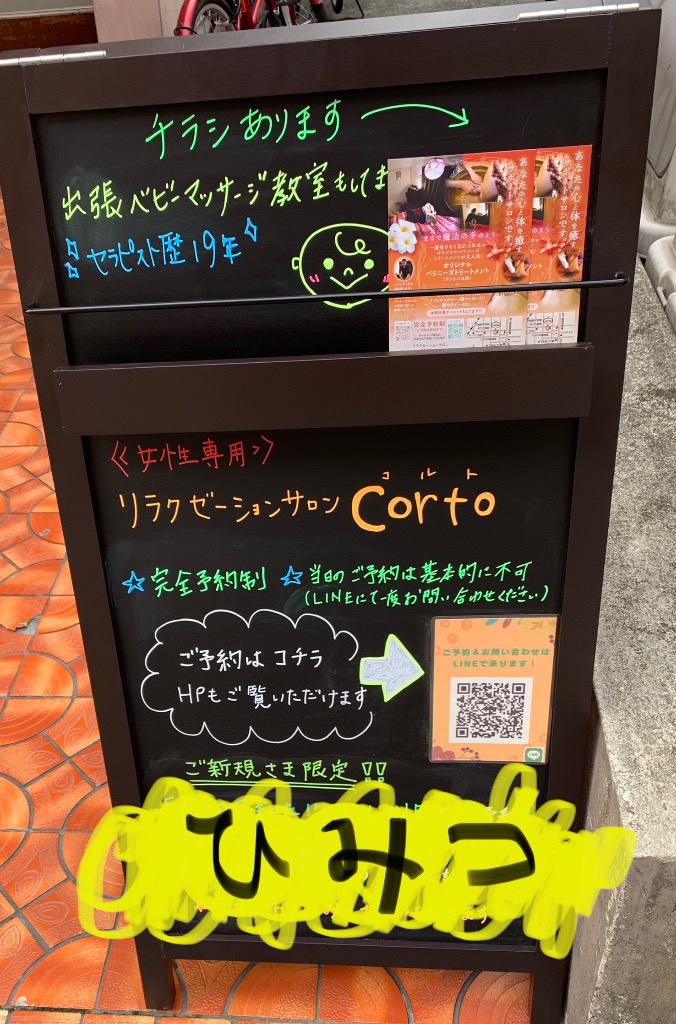 チラシあります
出張ベビーマッサージ教室もしてま
セラピスト歴19年
あなたの心と体を癒
サロンです。
まるで魔法の手のよう
オリジナル
バリニーズトリートメント
完全予約制
《女性専用》
コルト
リラクゼーションサロン Corto
☆完全予約制 ☆当日のご予約は基本的に不可
(LINEにて一度お問い合わせください)
ご予約はコチラ
HPもご覧いただけます
ご予約&お問い合わせは
LINEで承ります!
ご新規さま限定!!
ひみつ